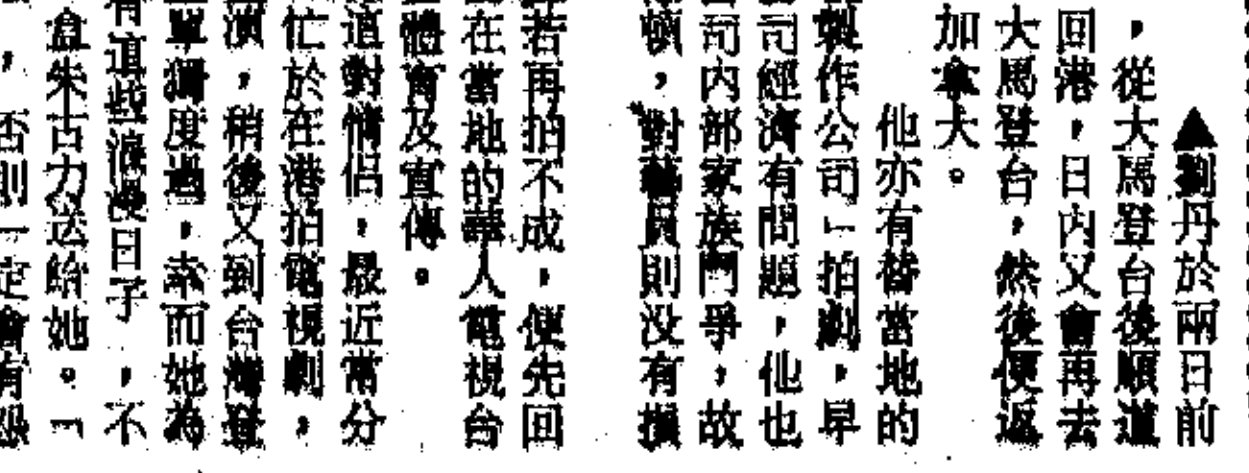 ▲劉丹於兩日前
，從大馬登台後順道
回港，日內又會再去
大馬登台，然後便返
加拿大。
他亦有替當地的
製作公司」拍劇，早
司經濟有問題，他也
司內部家族鬥爭，故
頓，對藝員則没有損
若再拍不成，便先回
在當地的華人電視台
體育及宣傳。
這對情侶，最近常分
忙於在港拍電視劇，
演，稍後又到台灣登
單獨度過，幸而她為
有道些浪漫日子，不
盒朱古力送給她。「
，否則一定會有怨